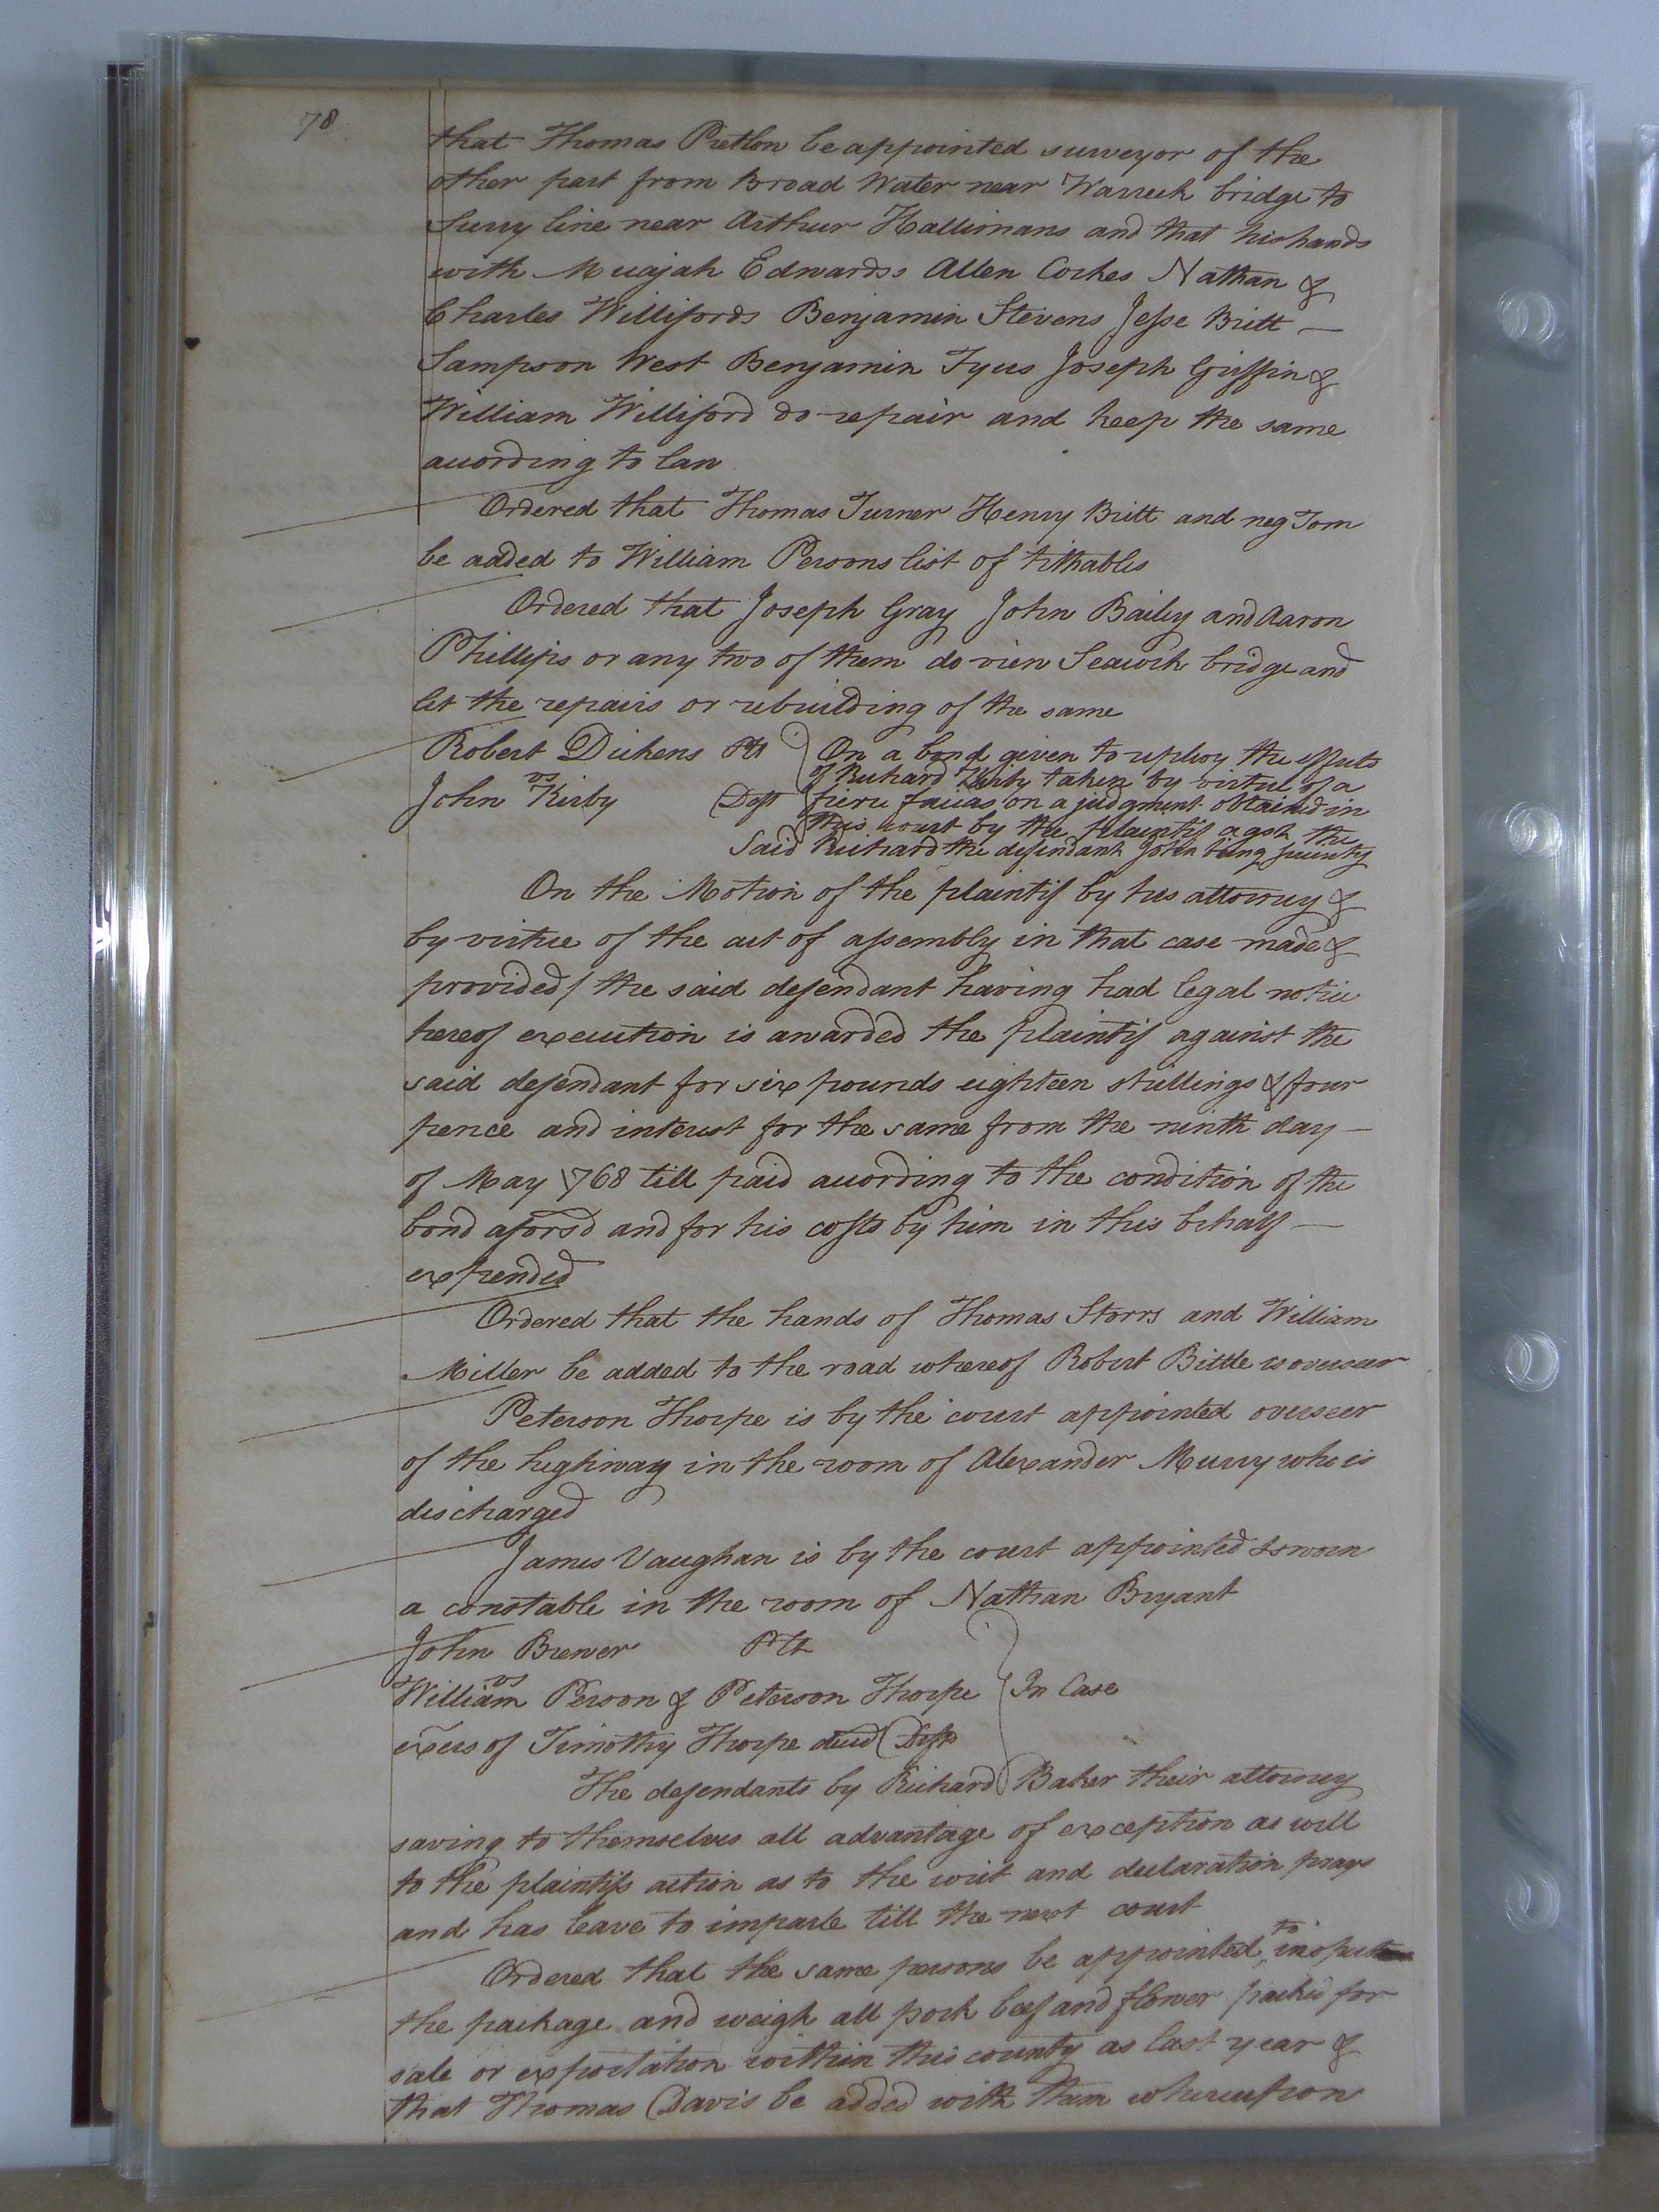 78
that Thomas Pretlow be appointed surveyor of the
other part from Broad Water near Warreck bridge to
Surry line near Arthur Hallimans and that his hands
with Micajah Edwardss Allen Cockes Nathan &
Charles Willifords Benjamin Stevens Jesse Britt —
Sampson West Benjamin Tyus Joseph Griffin &
William Williford do repair and keep the same
according to law
Ordered that Thomas Turner Henry Britt and neg Tom
be added to William Persons list of tithables
Ordered that Joseph Gray John Bailey and Aaron
Phillips or any two of them do view Seacock bridge and
let the repairs or rebuilding of the same
Robert Dickens Plt } On a bond given to replevy the effects
vs of Richard Kirby taken by virtue of a
John Kirby Deft fieri facias on a judgment obtained in
this court by the plaintif agst the
said Richard the defendant John being security
On the Motion of the plaintif by his attorney &
by virtue of the act of assembly in that case made &
provided / the said defendant having had legal notice
hereof execution is awarded the plaintif against the
said defendant for six pounds eighteen shillings & four
pence and interest for the same from the ninth day —
of May 1768 till paid according to the condition of the
bond aforsd and for his costs by him in this behalf —
expended
Ordered that the hands of Thomas Storrs and William
Miller be added to the road whereof Robert Bittle is overseer
Peterson Thorpe is by the court appointed overseer
of the highway in the room of Alexander Murry who is
discharged
James Vaughan is by the court appointed & sworn
a constable in the room of Nathan Bryant
John Brewer Plt
vs
William Person & Peterson Thorpe } In Case
exers of Timothy Thorpe decd Defts
The defendants by Richard Baker their attorney
saving to themselves all advantage of exception as well
to the plaintifs action as to the writ and declaration prays
and has leave to imparle till the next court
Ordered that the same persons be appointed to inspect
the package and weigh all pork beef and flower packed for
sale or exportation within this county as last year &
that Thomas Davis be added with them whereupon